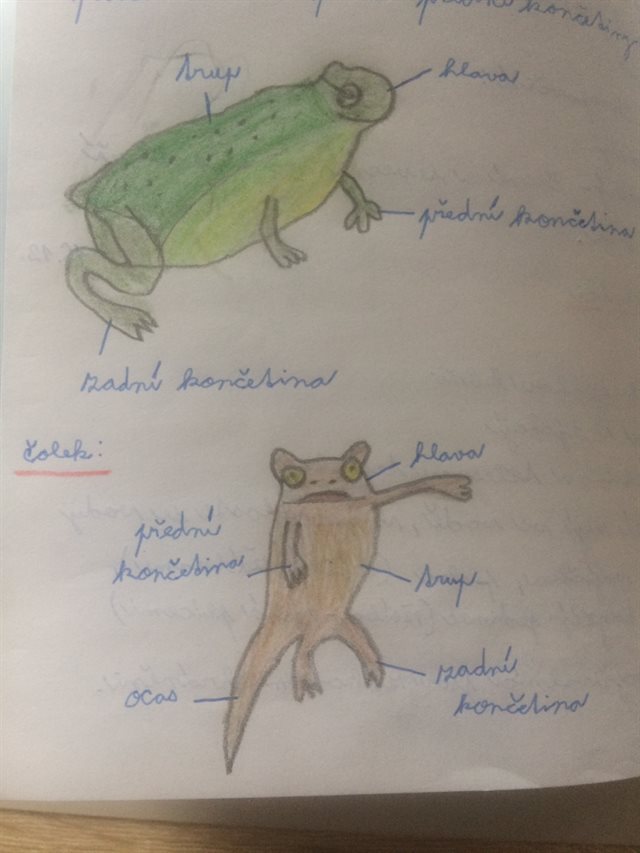 přední končetiny
trup
hlava
přední končetina
zadní končetina
čolek:
hlava
přední
končetina
trup
zadní
končetina
ocas